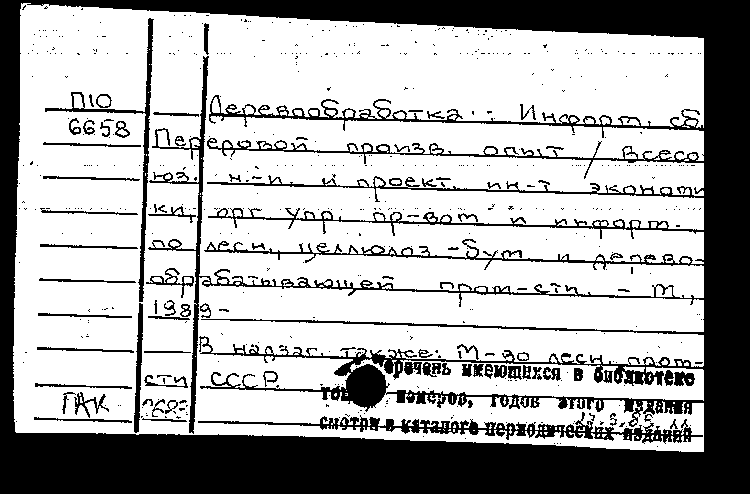 П10
6658
Деревообработка : Информ. сб.
Передовой произв. опыт / Всесо-
юз. н.-и. и проект. ин-т экономи
ки, орг. упр. пр-вом и информ.
по лесн., целлюлоз.-бум. и дерево-
обрабатывающей пром-сти. - М.,
1989-
В надзаг. также: М-во лесн. пром-
сти СССР
ГАК
Перечень имеющихся в библиотеке
томов, номеров, годов этого издания
смотри в каталоге периодических изданий